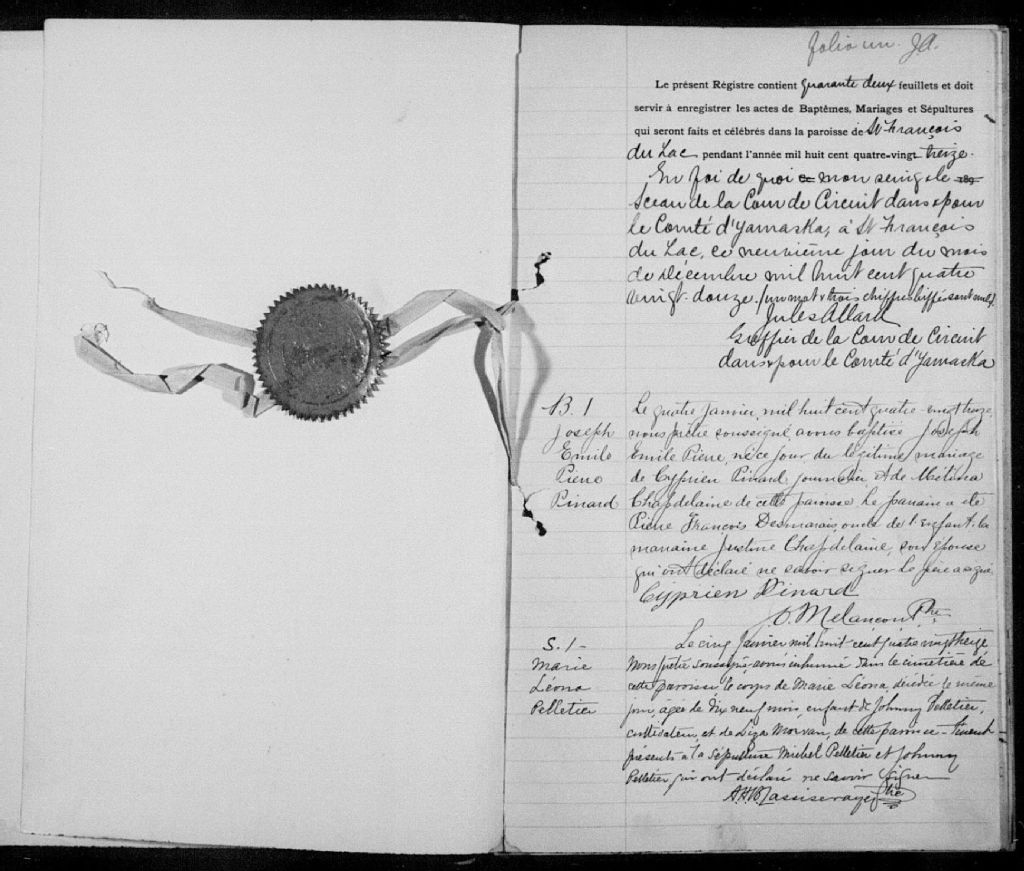 folio un. J.A.
Le présent Régistre contient quarante deux feuillets et doit
servir à enregistrer les actes de Baptêmes, Mariages et Sépultures
qui seront faits et célébrés dans la paroisse de St François
du Lac pendant l'année mil huit cent quatre-vingt treize.
En foi de quoi ce mon seing & le 189
Sceau de la Cour de Circuit dans & pour
le Comté d'Yamaska, à St François
du Lac, ce neuvième jour du mois
de Décembre mil huit cent quatre
vingt-douze. (un mot & trois chiffres biffés sont nuls)
Jules Allard
Greffier de la Cour de Circuit
dans & pour le Comté d'Yamaska
B. 1
Joseph
Emile
Pierre
Pinard
Le quatre janvier, mil huit cent quatre-vingt treize,
nous prêtre soussigné, avons baptisé Joseph
Emile Pierre, né ce jour du légitime mariage
de Cyprien Pinard, journalier, & de
Chapdelaine de cette paroisse. Le parrain a été
Pierre François Desmarais, oncle de l'enfant, la
marraine Justine Chapdelaine, son épouse
qui ont déclaré ne savoir signer. Le père a signé
Cyprien Pinard
O. Melancon Ptre
S. 1-
Marie
Léona
Pelletier
Le cinq janvier mil huit-cent quatre vingt treize
Nous prêtre soussigné avons inhumé dans le cimetière de
cette paroisse, le corps de Marie Léona, décédée le même
jour, agée de dix neuf mois, enfant de Johnny Pelletier,
cultivateur, et de Liza Morvan, de cette paroisse - Furent
présents à la sépulture Michel Pelletier et Johnny
Pelletier qui ont déclaré ne savoir signer
Ptre